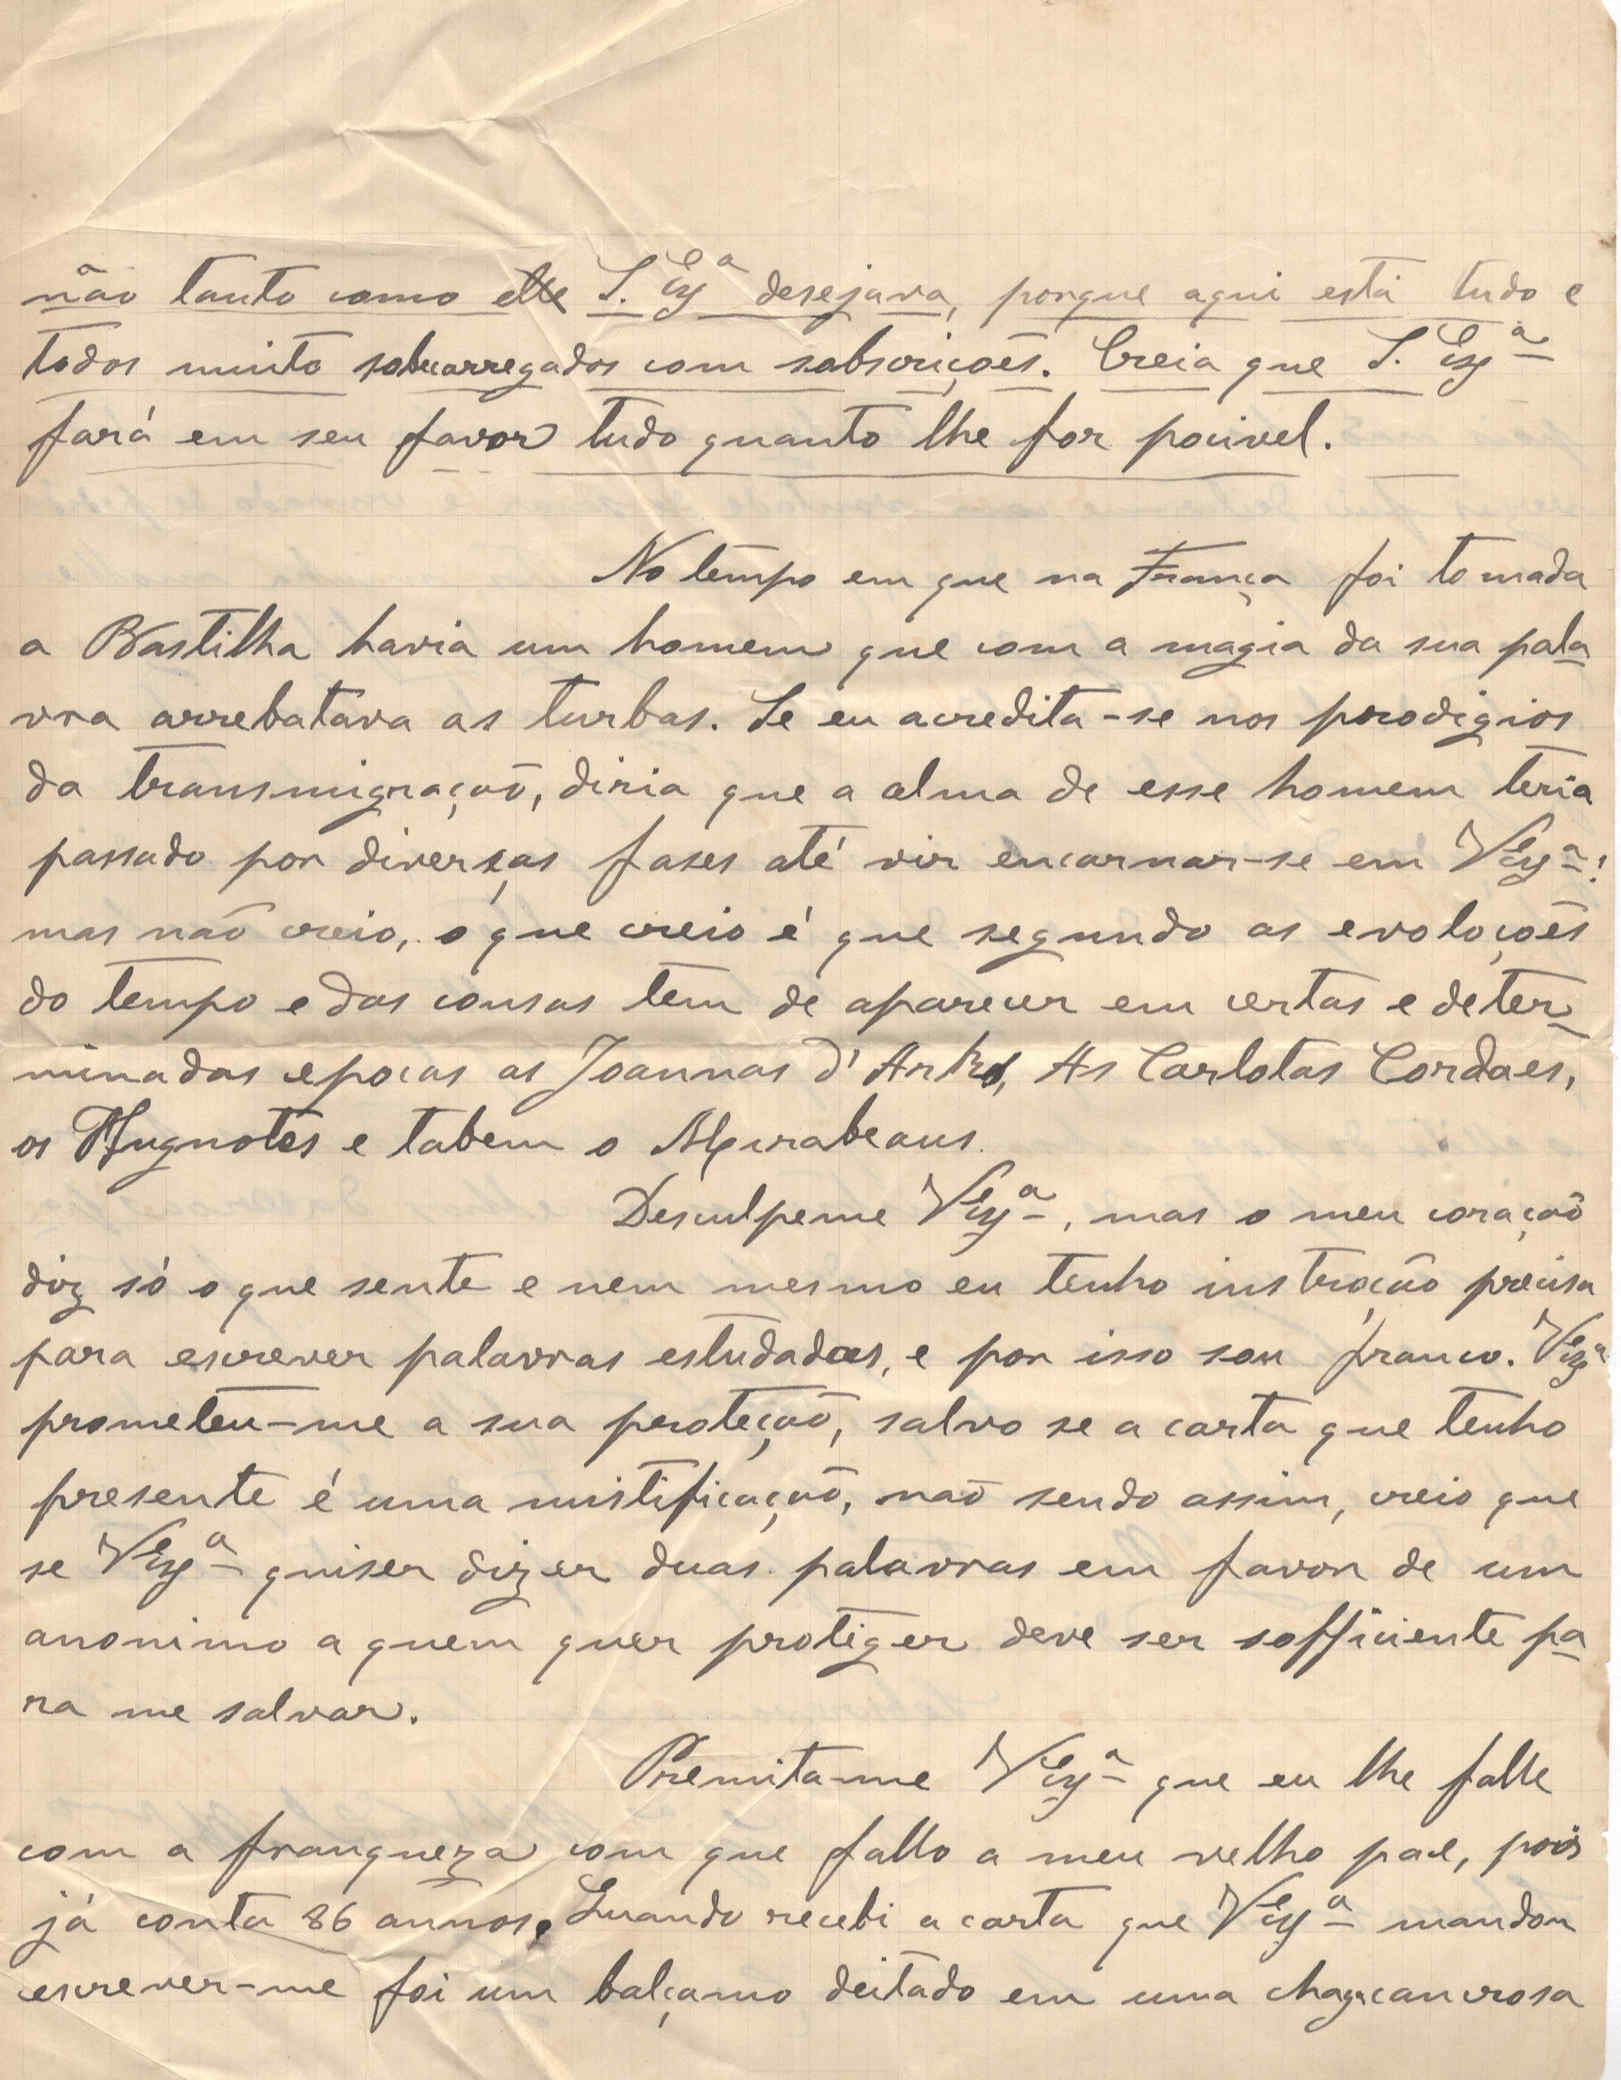 não tanto como elle S. Exª desejava, porque aqui está tudo e
todos muito sobrecarregados com sobscriçoẽs. Creia que S. Exª
fará em seu favor tudo quanto lhe for pocivel.
No tempo em que na França foi tomada
a Bastilha havia um homem que com a magia da sua pala
vra arrebatava as turbas. Se eu acredita-se nos prodigios
da transmigraçaõ, diria que a alma de esse homem teria
passado por diverças fases até vir encarnar-se em V Exª!
mas naõ creio, o que creio é que segundo as evoloçoẽs
do tempo e das cousas tem de aparecer em certas e deter
minadas epocas as Joannas d'Arks, As Carlotas Cordaes,
os Hugnotes e tabem o Mirabeaus.
Desculpeme V Exª, mas o meu coraçaõ
diz só o que sente e nem mesmo eu tenho instroção precisa
para escrever palavras estudadas, e por isso sou franco. V Exª
prometeu-me a sua proteçaõ, salvo se a carta que tenho
presente é uma mistificaçaõ, naõ sendo assim, creio que
se V Exª quiser dizer duas palavras em favor de um
anonimo a quem quer protiger deve ser sofficiente pa
ra me salvar.
Premita-me V Exª que eu lhe falle
com a franqueza com que fallo a meu velho pae, pois
já conta 86 annos. Quando recebi a carta que V Exª mandou
escrever-me foi um balçamo deitado em uma chaga cancrosa